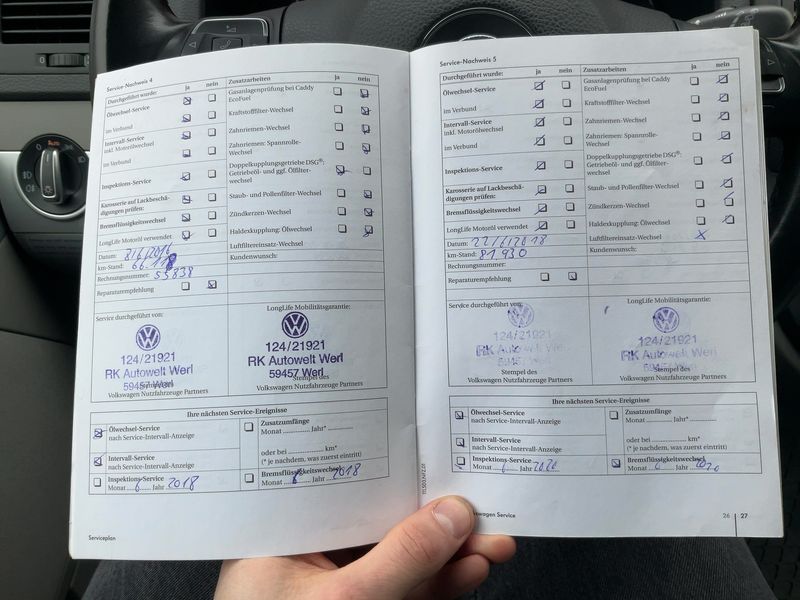 Service-Nachweis 4
Durchgeführt wurde: ja nein
Ölwechsel-Service
im Verbund
Intervall-Service
inkl. Motorölwechsel
im Verbund
Inspektions-Service
Karosserie auf Lackbeschä-
digungen prüfen:
Bremsflüssigkeitswechsel
LongLife Motoröl verwendet
Datum:
km-Stand:
Rechnungsnummer: 55838
Reparaturempfehlung
Zusatzarbeiten ja nein
Gasanlagenprüfung bei Caddy
EcoFuel
Kraftstofffilter-Wechsel
Zahnriemen-Wechsel
Zahnriemen: Spannrolle-
Wechsel
Doppelkupplungsgetriebe DSG®:
Getriebeöl- und ggf. Ölfilter-
wechsel
Staub- und Pollenfilter-Wechsel
Zündkerzen-Wechsel
Haldexkupplung: Ölwechsel
Luftfiltereinsatz-Wechsel
Kundenwunsch:
Service durchgeführt von:
124/21921
RK Autowelt Werl
59457 Werl
Volkswagen Nutzfahrzeuge Partners
LongLife Mobilitätsgarantie:
124/21921
RK Autowelt Werl
59457 Werl
Stempel des
Volkswagen Nutzfahrzeuge Partners
Ihre nächsten Service-Ereignisse
Ölwechsel-Service
nach Service-Intervall-Anzeige
Intervall-Service
nach Service-Intervall-Anzeige
Inspektions-Service
Monat 6 Jahr 2018
Zusatzumfänge
Monat Jahr*
oder bei km*
(* je nachdem, was zuerst eintritt)
Bremsflüssigkeitswechsel
Monat 6 Jahr 2018
Serviceplan
Service-Nachweis 5
Durchgeführt wurde: ja nein
Ölwechsel-Service
im Verbund
Intervall-Service
inkl. Motorölwechsel
im Verbund
Inspektions-Service
Karosserie auf Lackbeschä-
digungen prüfen:
Bremsflüssigkeitswechsel
LongLife Motoröl verwendet
Datum: 22/6/2018
km-Stand: 81.930
Rechnungsnummer:
Reparaturempfehlung
Zusatzarbeiten ja nein
Gasanlagenprüfung bei Caddy
EcoFuel
Kraftstofffilter-Wechsel
Zahnriemen-Wechsel
Zahnriemen: Spannrolle-
Wechsel
Doppelkupplungsgetriebe DSG®:
Getriebeöl- und ggf. Ölfilter-
wechsel
Staub- und Pollenfilter-Wechsel
Zündkerzen-Wechsel
Haldexkupplung: Ölwechsel
Luftfiltereinsatz-Wechsel X
Kundenwunsch:
Service durchgeführt von:
124/21921
RK Autowelt Werl
59457 Werl
Stempel des
Volkswagen Nutzfahrzeuge Partners
LongLife Mobilitätsgarantie:
124/21921
RK Autowelt Werl
59457 Werl
Stempel des
Volkswagen Nutzfahrzeuge Partners
Ihre nächsten Service-Ereignisse
Ölwechsel-Service
nach Service-Intervall-Anzeige
Intervall-Service
nach Service-Intervall-Anzeige
Inspektions-Service
Monat 6 Jahr 2020
Zusatzumfänge
Monat Jahr*
oder bei km*
(* je nachdem, was zuerst eintritt)
Bremsflüssigkeitswechsel
Monat 6 Jahr 2020
Service
26 27
Auto